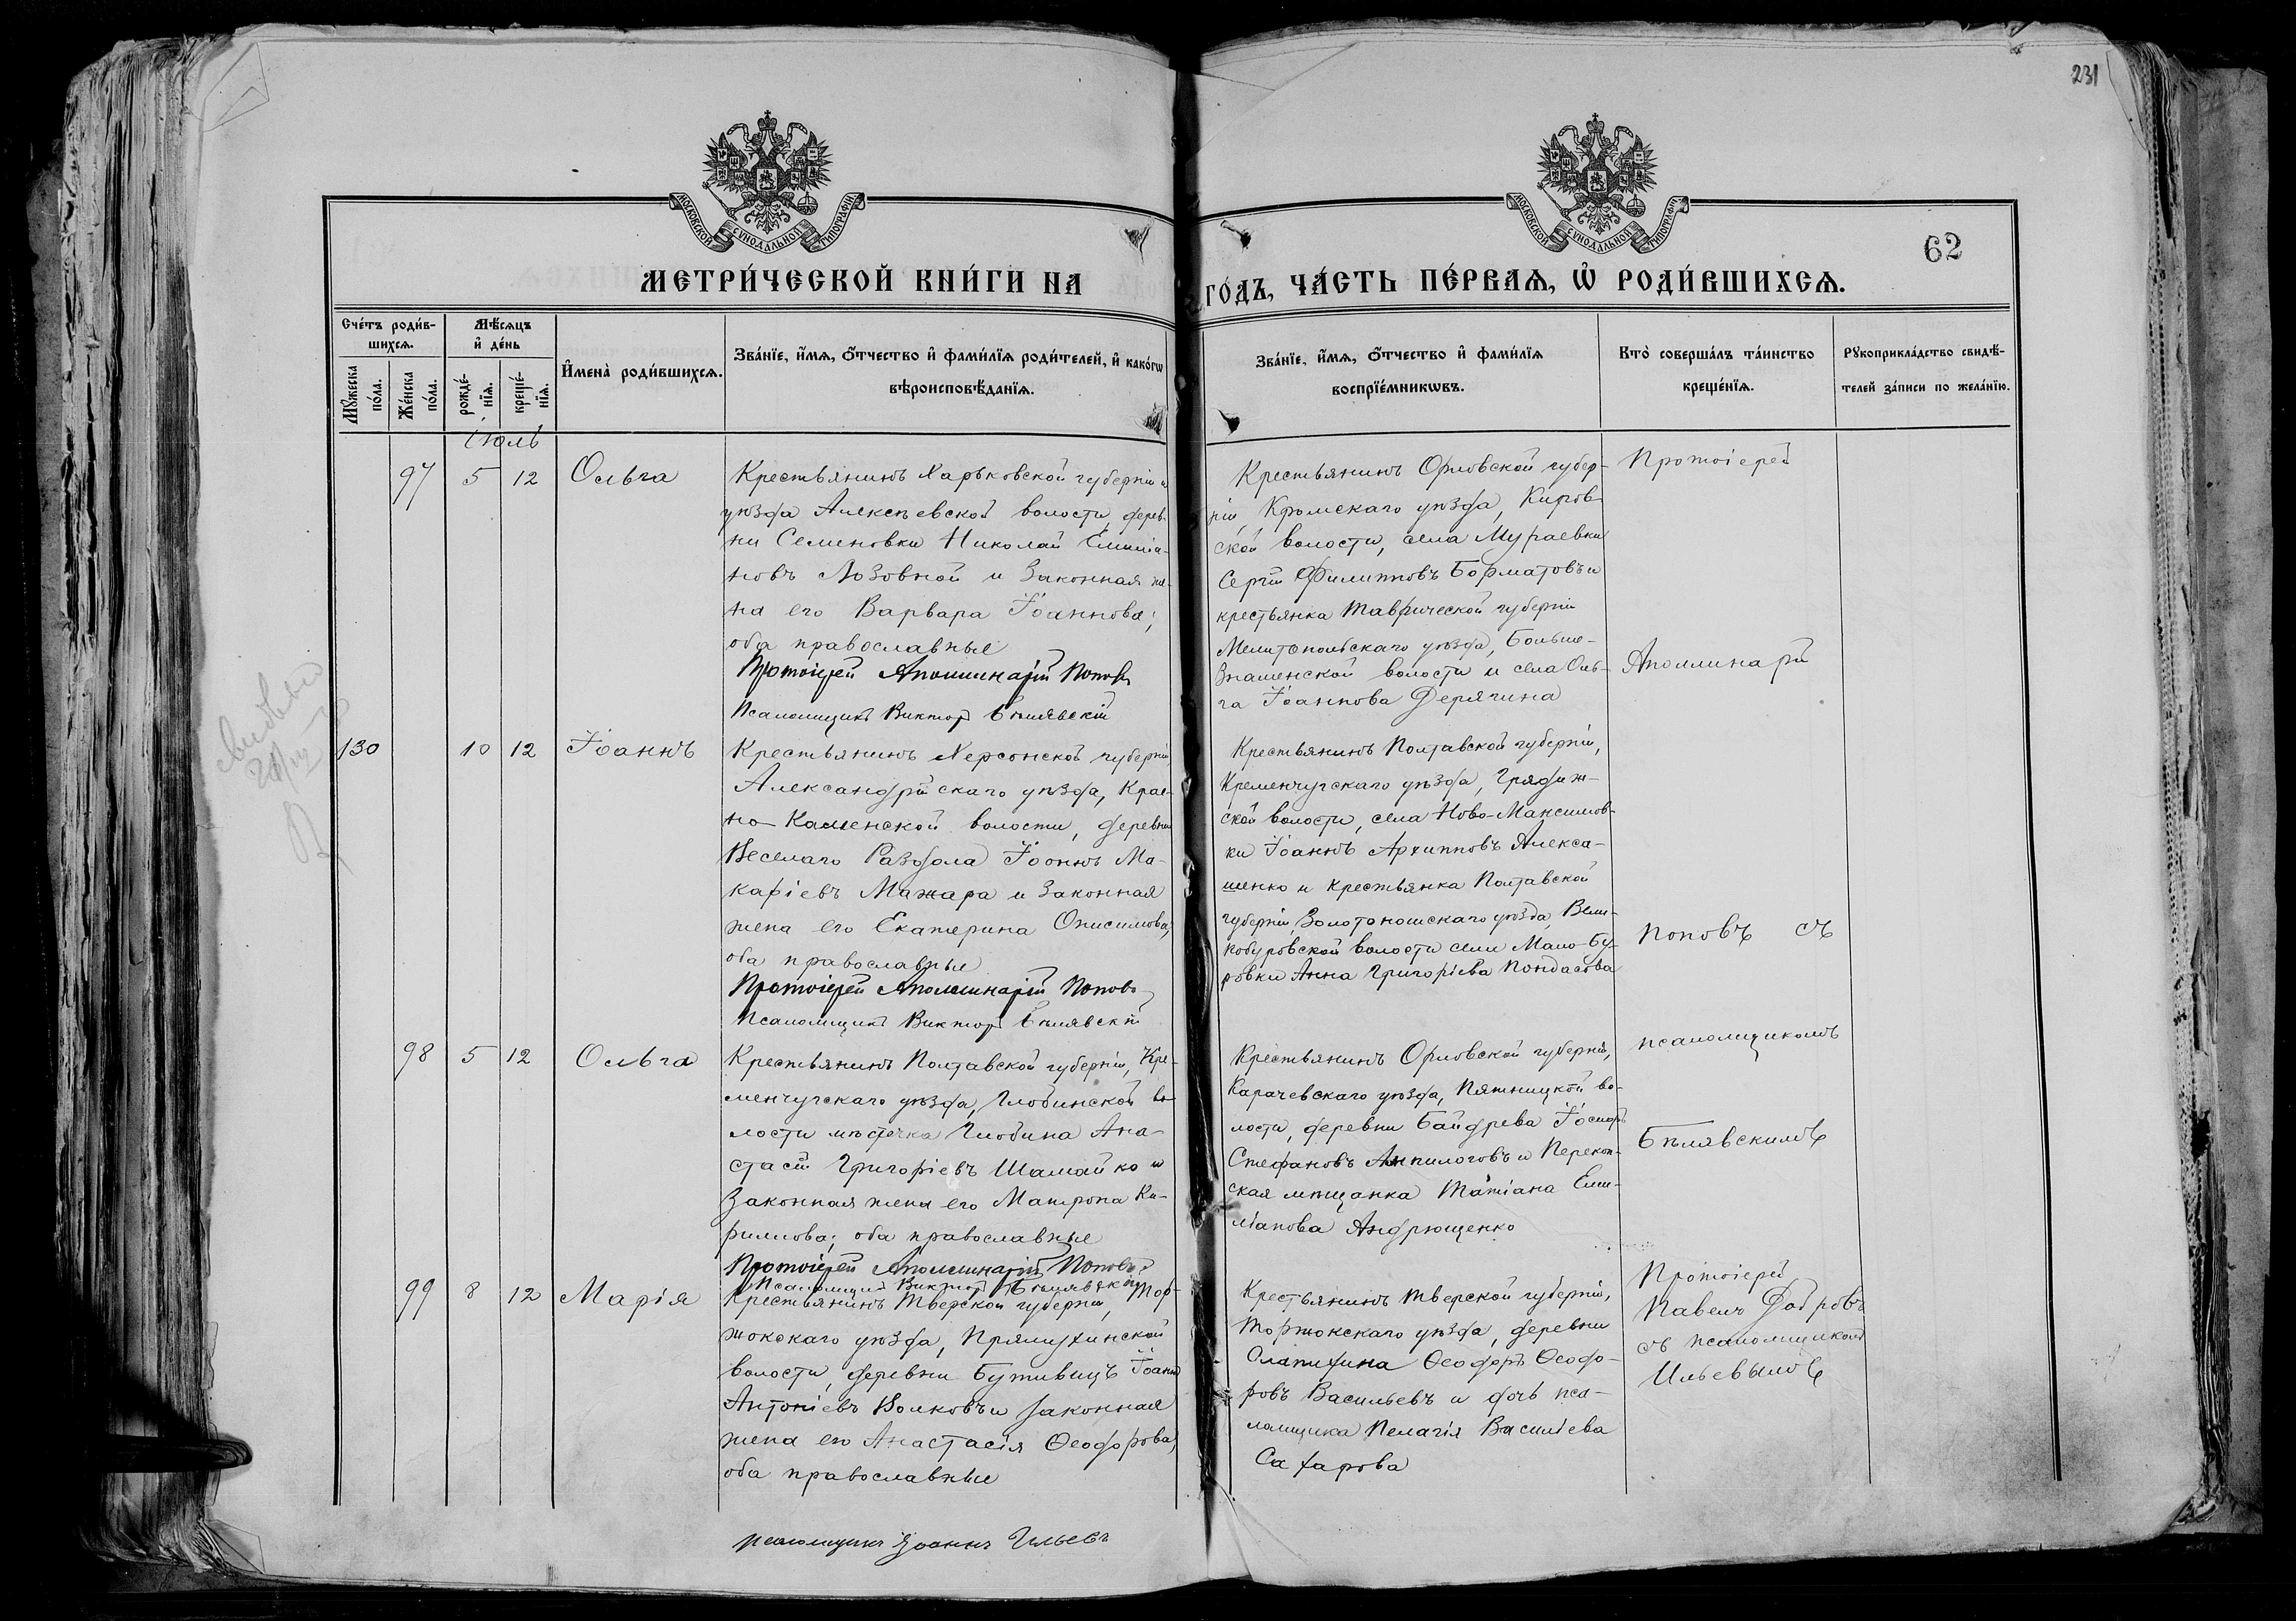 231
МОСКОВСКОЙ СѴНОДАЛЬНОЙ ТИПОГРАФІИ
МОСКОВСКОЙ СѴНОДАЛЬНОЙ ТИПОГРАФІИ
62
МЕТРИ́ЧЕСКОЙ КНИ́ГИ НА
ГО́ДЪ, ЧА́СТЬ ПЕ́РВАѦ, Ѡ҆ РОДИ́ВШИХСѦ.
Сче́тъ роди́в-
шихсѧ.
Мꙋ́жеска по́ла.
Же́нска по́ла.
Мѣ́сѧцъ
и҆ де́нь
рожде́-
нїѧ.
креще́-
нїѧ.
И҆мена̀ роди́вшихсѧ.
Зва́нїе, и҆́мѧ, ѻ҆́тчество и҆ фами́лїѧ роди́телей, и҆ како́гѡ
вѣроисповѣ́данїѧ.
Зва́нїе, и҆́мѧ, ѻ҆́тчество и҆ фами́лїѧ
воспрїе́мникѡвъ.
Кто̀ соверша́лъ та́инство
креще́нїѧ.
Рꙋкоприкла́дство свидѣ́-
телей за́писи по жела́нїю.
Іюль
97 5 12 Ольга
Крестьянинъ Харьковской губерніи и
уѣзда Алексѣевской волости, дерев-
ни Семеновки Николай Емилiа-
новъ Лозовной и законная же-
на его Варвара Іоаннова;
оба православные
Протоіерей Аполлинарій Поповъ
Псаломщикъ Викторъ Бѣлявскій
Крестьянинъ Орловской губер-
ніи, Кромскаго уѣзда, Киров-
ской волости, села Мураевки
Сергій Филипповъ Борматовъ и
крестьянка Таврической губерніи
Мелитопольскаго уѣзда, Больше-
Знаменской волости и села Оль-
га Іоаннова Дерячина
Протоіерей
Аполлинарій
130 10 12 Іоаннъ
Крестьянинъ Херсонской губерніи
Александрійскаго уѣзда, Крас-
но-Каменской волости, деревни
Веселаго Раздола Іоаннъ Ма-
каріевъ Мажара и законная
жена его Екатерина Онисимова;
оба православные
Протоіерей Аполлинарій Поповъ
Псаломщикъ Викторъ Бѣлявскій
Крестьянинъ Полтавской губерніи,
Кременчугскаго уѣзда, Градиж-
ской волости, села Ново-Максимов-
ки Іоаннъ Архипповъ Алекса-
шенко и крестьянка Полтавской
губерніи Золотоношскаго уѣзда, Вели-
кобуровской волости села Мало-Бу-
ровки Анна Григоріева Пондасова
Поповъ съ
псаломщикомъ
98 5 12 Ольга
Крестьянинъ Полтавской губерніи, Кре-
менчугскаго уѣзда, Глобинской во-
лости мѣстечка Глобина Ана-
стасій Григоріевъ Шамайко и
законная жена его Матрона Ки-
риллова; оба православные
Протоіерей Аполлинарій Поповъ
Псаломщикъ Викторъ Бѣлявскій
Крестьянинъ Орловской губерніи,
Карачевскаго уѣзда, Пятницкой во-
лости, деревни Байдрева Іосифъ
Стефановъ Анпилоговъ и Перекоп-
ская мѣщанка Татіана Еми-
ліанова Андрющенко
Бѣлявскимъ
99 8 12 Марія
Крестьянинъ Тверской губерніи, Тор-
жокскаго уѣзда, Прямухинской
волости, деревни Бутивицъ Іоаннъ
Антоніевъ Волковъ и законная
жена его Анастасія Ѳеодорова,
оба православные
Крестьянинъ Тверской губерніи,
Торжокскаго уѣзда, деревни
Ѳеодоръ Ѳеодо-
ровъ Васильевъ и дочь пса-
ломщика Пелагія Василіева
Сахарова
Протоіерей
Павелъ Добровъ
съ псаломщикомъ
Ильевымъ
псаломщикъ Іоаннъ Ильевъ